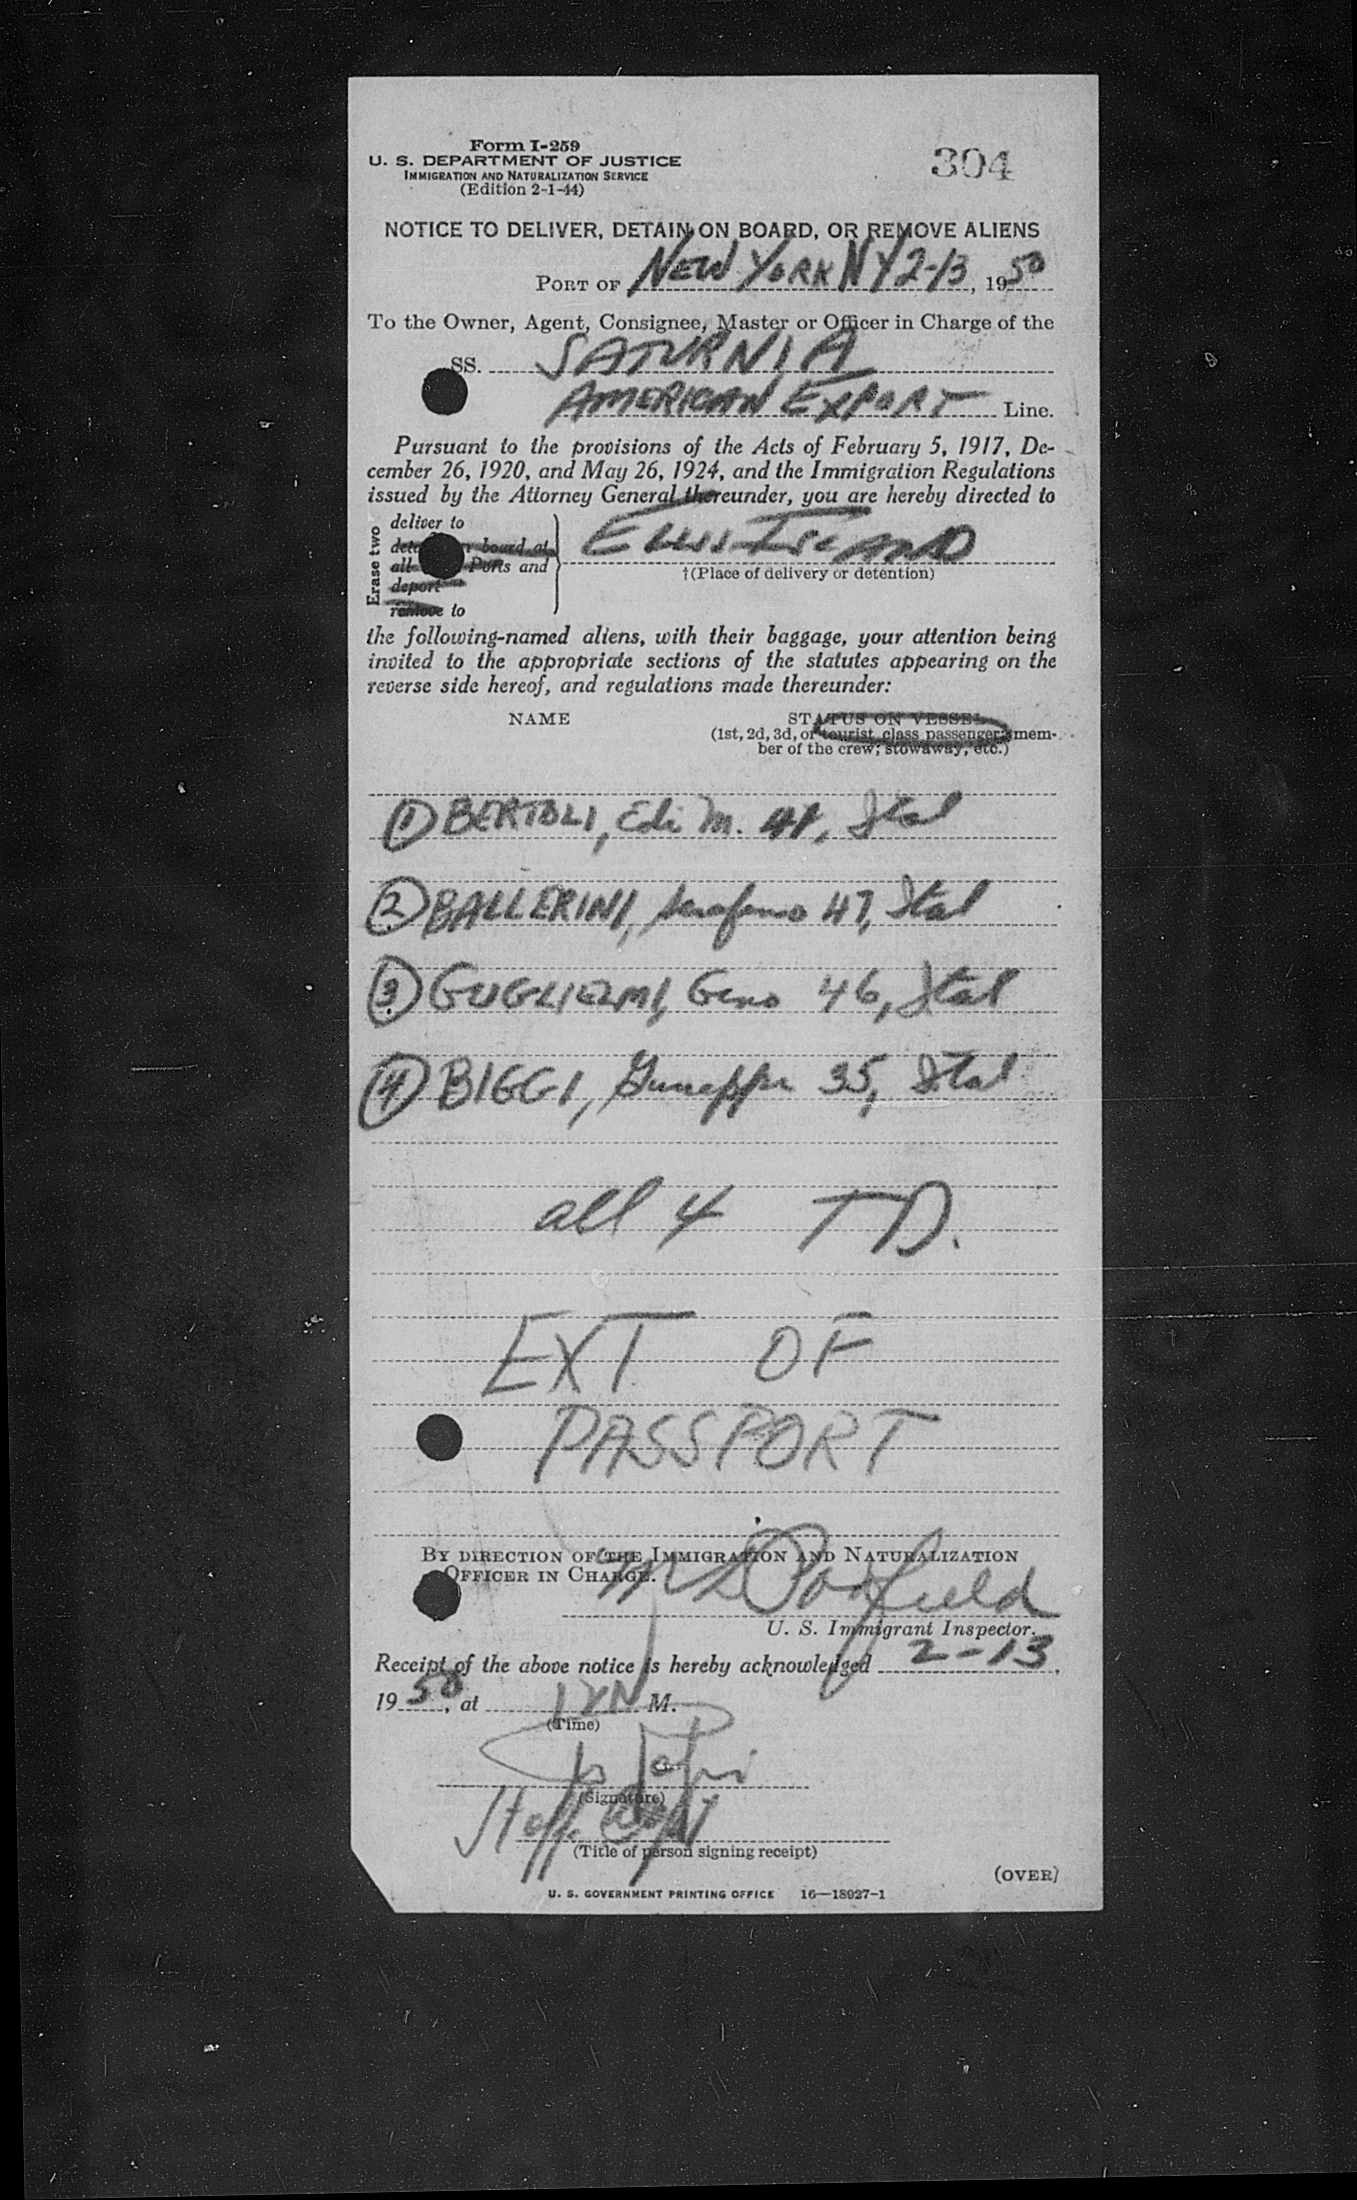 Form I-259
U. S. DEPARTMENT OF JUSTICE
IMMIGRATION AND NATURALIZATION SERVICE
(Edition 2-1-44)
304
NOTICE TO DELIVER, DETAIN ON BOARD, OR REMOVE ALIENS
PORT OF NEW YORK NY 2-13, 1950
To the Owner, Agent, Consignee, Master or Officer in Charge of the
SS. SATURNIA
AMERICAN EXPORT Line.
Pursuant to the provisions of the Acts of February 5, 1917, De-
cember 26, 1920, and May 26, 1924, and the Immigration Regulations
issued by the Attorney General thereunder, you are hereby directed to
Erase two
deliver to
board at
all Ports and
deport
remove to
ELLIS ISLAND
†(Place of delivery or detention)
the following-named aliens, with their baggage, your attention being
invited to the appropriate sections of the statutes appearing on the
reverse side hereof, and regulations made thereunder:
NAME
STATUS ON VESSEL
(1st, 2d, 3d, or tourist class passenger; mem-
ber of the crew; stowaway, etc.)
1 BERTOLI, M. Ital
2 BALLERINI, Serafino 47, Ital
3 GUGLIELMI, Gino 46, Ital
4 BIGGI, Giuseppe 35, Ital
all 4 TD.
EXT OF
PASSPORT
BY DIRECTION OF THE IMMIGRATION AND NATURALIZATION
OFFICER IN CHARGE.
U. S. Immigrant Inspector.
Receipt of the above notice is hereby acknowledged 2-13,
1950, at 12N M.
(Time)
(Signature)
(Title of person signing receipt)
(OVER)
U. S. GOVERNMENT PRINTING OFFICE 16—18927-1